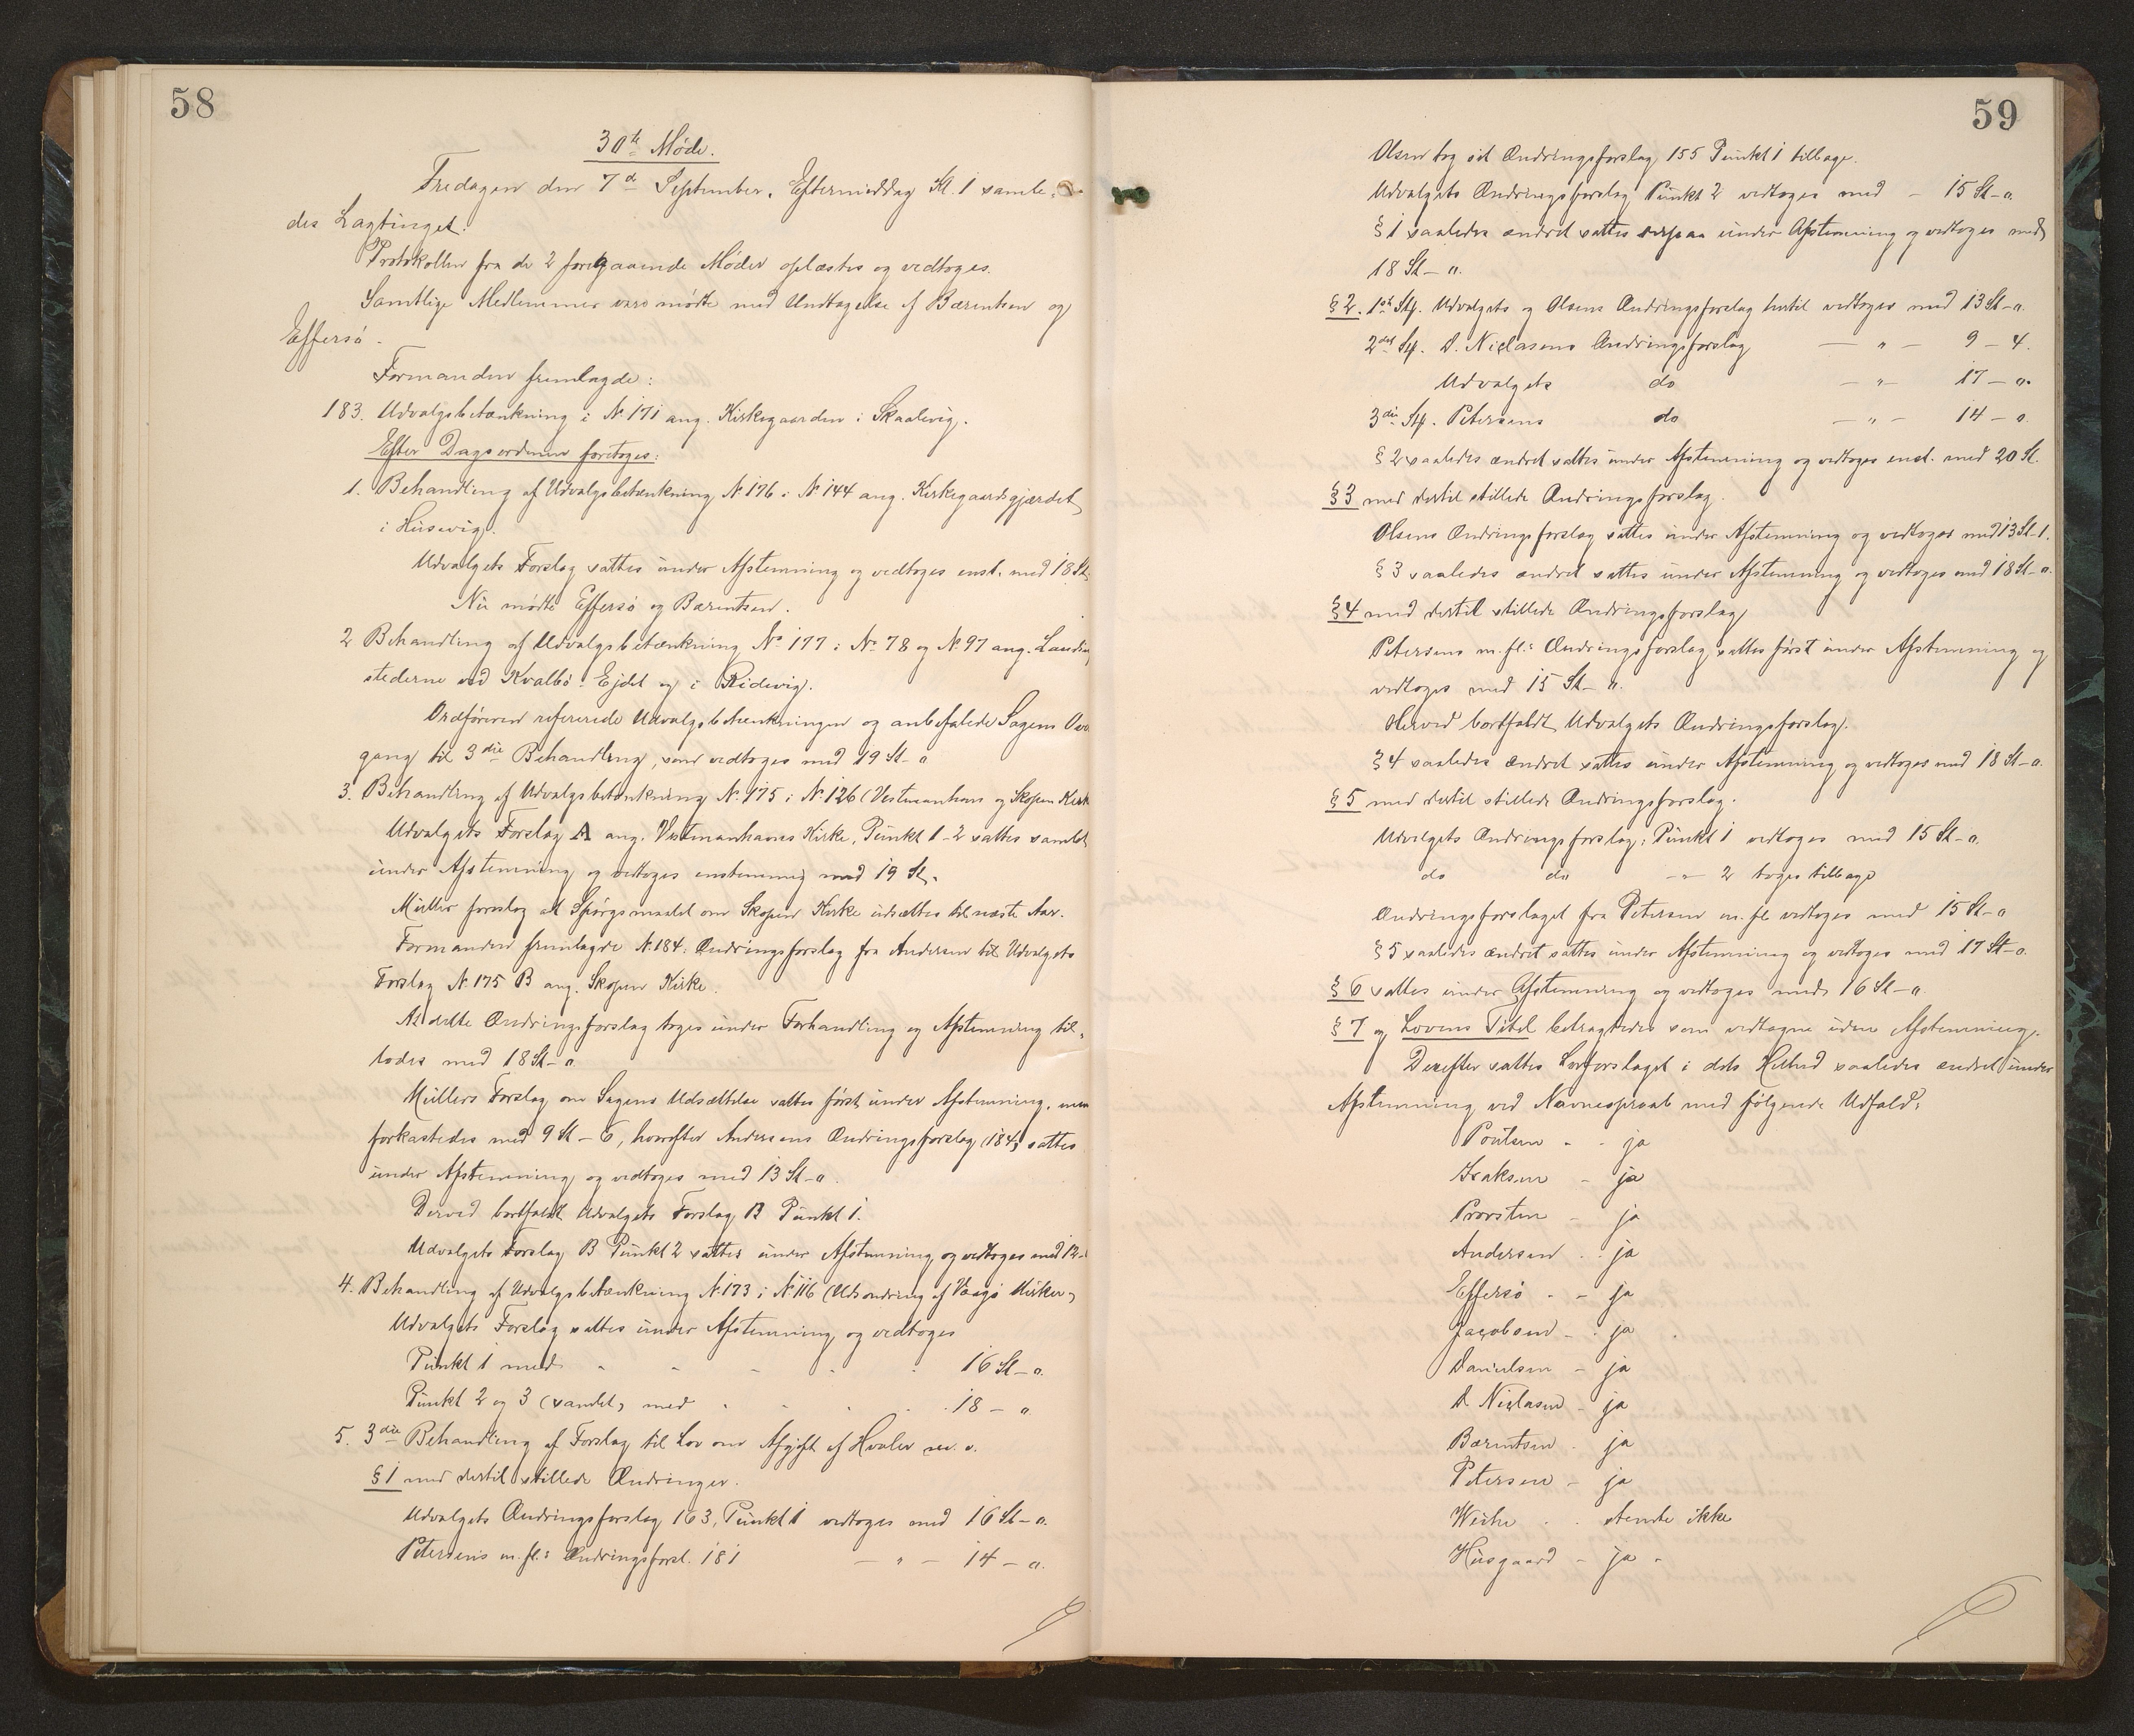 58
30te Møde.
Fredagen den 7d September, Eftermiddag Kl. 1 samle-
des Lagtinget.
Protokollen fra de 2 foregaaende Møder oplæstes og vedtoges.
Samtlige Medlemmer vare mødte med Undtagelse af Bærentsen og
Effersø.
Formanden fremlagde:
183. Udvalgsbetænkning i No 171 ang. Kirkegaarden i Skaalevig.
Efter Dagsordenen foretoges:
1. Behandling af Udvalgsbetænkning No 176 i No 144 ang. Kirkegaardsgjærdet
i Husevig.
Udvalgets Forslag sattes under Afstemning og vedtoges enst. med 18 St.
Nu mødte Effersø og Bærentsen.
2 Behandling af Udvalgsbetænkning No 177 i No 78 og No 97 ang. Landings
stederne ved Kvalbø-Ejdet og i Ridevig.
Ordføreren refererede Udvalgsbetænkningen og anbefalede Sagens Over
gang til 3die Behandling, som vedtoges med 19 St-0
3. Behandling af Udvalgsbetænkning No 175 i No 126 (Vestmanhavn og Skopun Kirk
Udvalgets Forslag A ang. Vestmanhavns Kirke, Punkt 1-2 sattes samlet
under Afstemning og vedtoges enstemmig med 19 St.
Müller foreslog at Spørgsmaalet om Skopun Kirke udsættes til næste Aar.
Formanden fremlagde No 184: Ændringsforslag fra Andersen til Udvalgets
Forslag No 175 B ang. Skopun Kirke.
At dette Ændringsforslag toges under Forhandling og Afstemning til-
lodes med 18 St-0
Müllers Forslag om Sagens Udsættelse sattes først under Afstemning, men
forkastedes med 9 St-6, hvorefter Andersens Ændringsforslag (184) sattes
under Afstemning og vedtoges med 13 St-0.
Derved bortfaldt Udvalgets Forslag B Punkt 1.
Udvalgets Forslag B Punkt 2 sattes under Afstemning og vedtoges med 12-
4. Behandling af Udvalgsbetænkning No 173 i No 116 (Udsondring af Vaagø Kirker)
Udvalgets Forslag sattes under Afstemning og vedtoges
Punkt 1 med - - - - - 16 St-0.
Punkt 2 og 3 (samlet) med - - - - 18 - 0
5. 3die Behandling af Forslag til Lov om Afgift af Hvaler m. v.
§ 1 med dertil stillede Ændringer.
Udvalgets Ændringsforslag 163, Punkt 1 vedtoges med 16 St-0.
Petersens m. fl.s Ændringsforsl. 181 — " — 14 - 0.
59
Olsen tog sit Ændringsforslag 155 Punkt 1 tilbage.
Udvalgets Ændringsforslag Punkt 2 vedtoges med - 15 St-0.
§ 1 saaledes ændret sattes derpaa under Afstemning og vedtoges med
18 St-0.
§ 2. 1ste Stk. Udvalgets og Olsens Ændringsforslag hertil vedtoges med 13 St-0.
2det Stk. D. Niclasens Ændringsforslag — " — 9 - 4.
Udvalgets do — " — 17 - 0.
3die Stk. Petersens do — " — 14 - 0
§ 2 saaledes ændret sattes under Afstemning og vedtoges enst. med 20 St.
§ 3 med dertil stillede Ændringsforslag.
Olsens Ændringsforslag sattes under Afstemning og vedtoges med 13 St-1.
§ 3 saaledes ændret sattes under Afstemning og vedtoges med 18 St-0.
§ 4 med dertil stillede Ændringsforslag
Petersens m. fl.s Ændringsforslag sattes først under Afstemning og
vedtoges med 15 St-0.
Herved bortfaldt Udvalgets Ændringsforslag.
§ 4 saaledes ændret sattes under Afstemning og vedtoges med 18 St-0.
§ 5 med dertil stillede Ændringsforslag.
Udvalgets Ændringsforslag: Punkt 1 vedtoges med 15 St-0.
do do - " - 2 toges tilbage
Ændringsforslaget fra Petersen m. fl vedtoges med 15 St-0
§ 5 saaledes ændret sattes under Afstemning og vedtoges med 17 St-0.
§ 6 sattes under Afstemning og vedtoges med 16 St-0.
§ 7 og Lovens Titel betragtedes som vedtagne uden Afstemning.
Derefter sattes Lovforslaget i dets Helhed saaledes ændret under
Afstemning ved Navneopraab med følgende Udfald:
Poulsen - - ja
Isaksen - ja
Provsten - ja
Andersen - - ja
Effersø - - ja
Jacobsen - - ja
Danielsen - ja
D. Niclasen - ja
Bærentsen - ja
Petersen - ja
Weihe - - stemte ikke
Husgaard - ja -